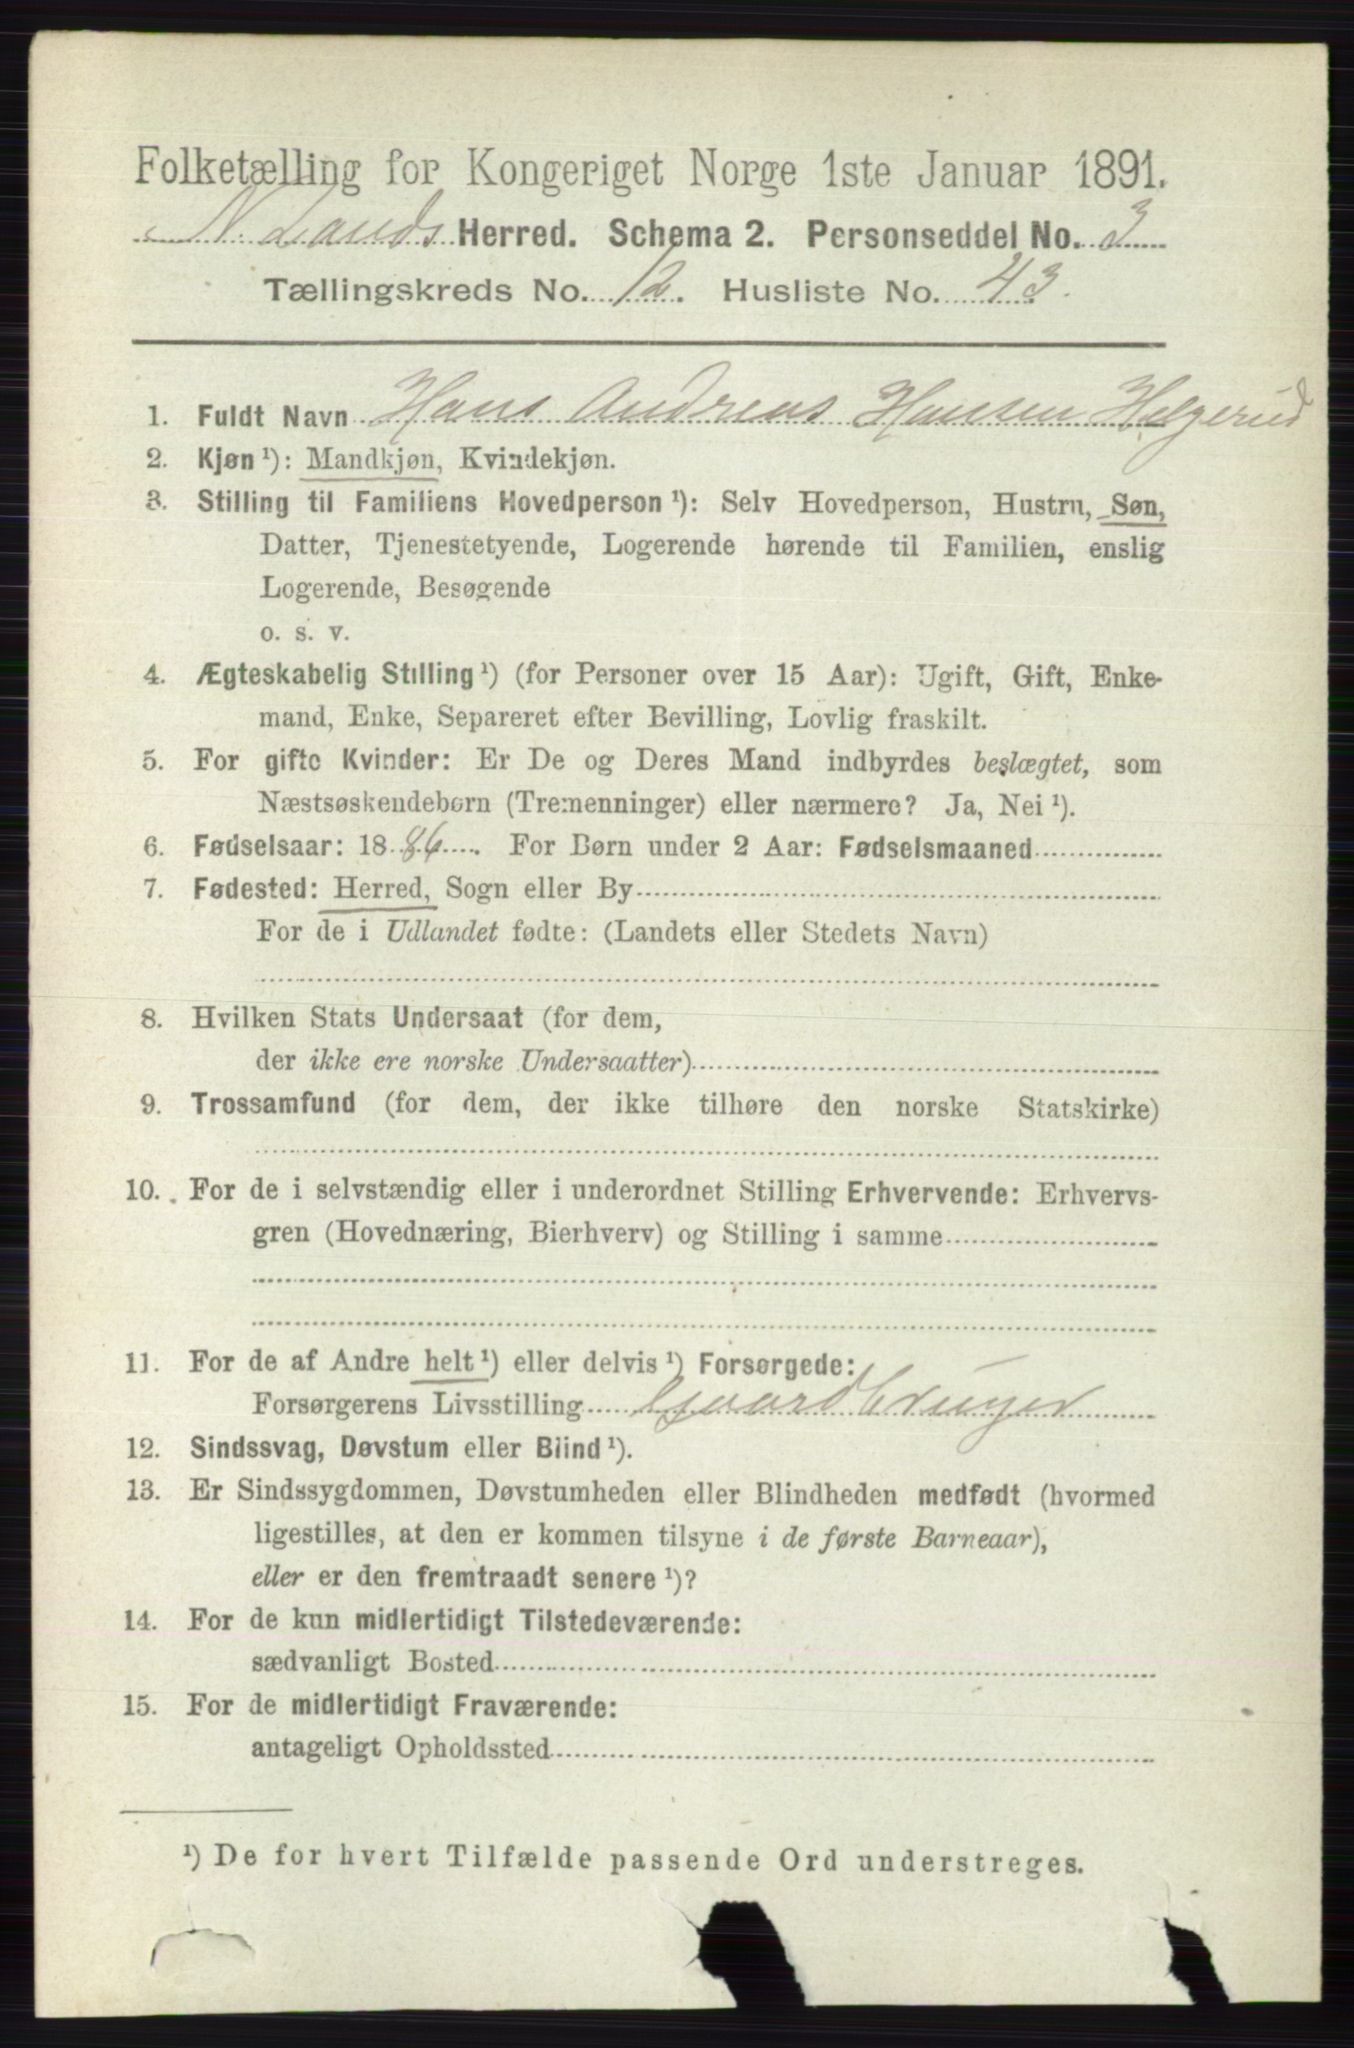 Folketælling for Kongeriget Norge 1ste Januar 1891.
N. Lands Herred. Schema 2. Personseddel No. 3
Tællingskreds No. 12. Husliste No. 43.
1. Fuldt Navn Hans Andreas Hansen Helgerud
2. Kjøn¹): Mandkjøn, Kvindekjøn.
3. Stilling til Familiens Hovedperson¹): Selv Hovedperson, Hustru, Søn,
Datter, Tjenestetyende, Logerende hørende til Familien, enslig
Logerende, Besøgende
o. s. v.
4. Ægteskabelig Stilling¹) (for Personer over 15 Aar): Ugift, Gift, Enke-
mand, Enke, Separeret efter Bevilling, Lovlig fraskilt.
5. For gifte Kvinder: Er De og Deres Mand indbyrdes beslægtet, som
Næstsøskendebørn (Tremenninger) eller nærmere? Ja, Nei¹).
6. Fødselsaar: 1886. For Børn under 2 Aar: Fødselsmaaned
7. Fødested: Herred, Sogn eller By
For de i Udlandet fødte: (Landets eller Stedets Navn)
8. Hvilken Stats Undersaat (for dem,
der ikke ere norske Undersaatter)
9. Trossamfund (for dem, der ikke tilhøre den norske Statskirke)
10. For de i selvstændig eller i underordnet Stilling Erhvervende: Erhvervs-
gren (Hovednæring, Bierhverv) og Stilling i samme
11. For de af Andre helt¹) eller delvis¹) Forsørgede:
Forsørgerens Livsstilling Gaardbruger
12. Sindssvag, Døvstum eller Blind¹).
13. Er Sindssygdommen, Døvstumheden eller Blindheden medfødt (hvormed
ligestilles, at den er kommen tilsyne i de første Barneaar),
eller er den fremtraadt senere¹)?
14. For de kun midlertidigt Tilstedeværende:
sædvanligt Bosted
15. For de midlertidigt Fraværende:
antageligt Opholdssted
¹) De for hvert Tilfælde passende Ord understreges.